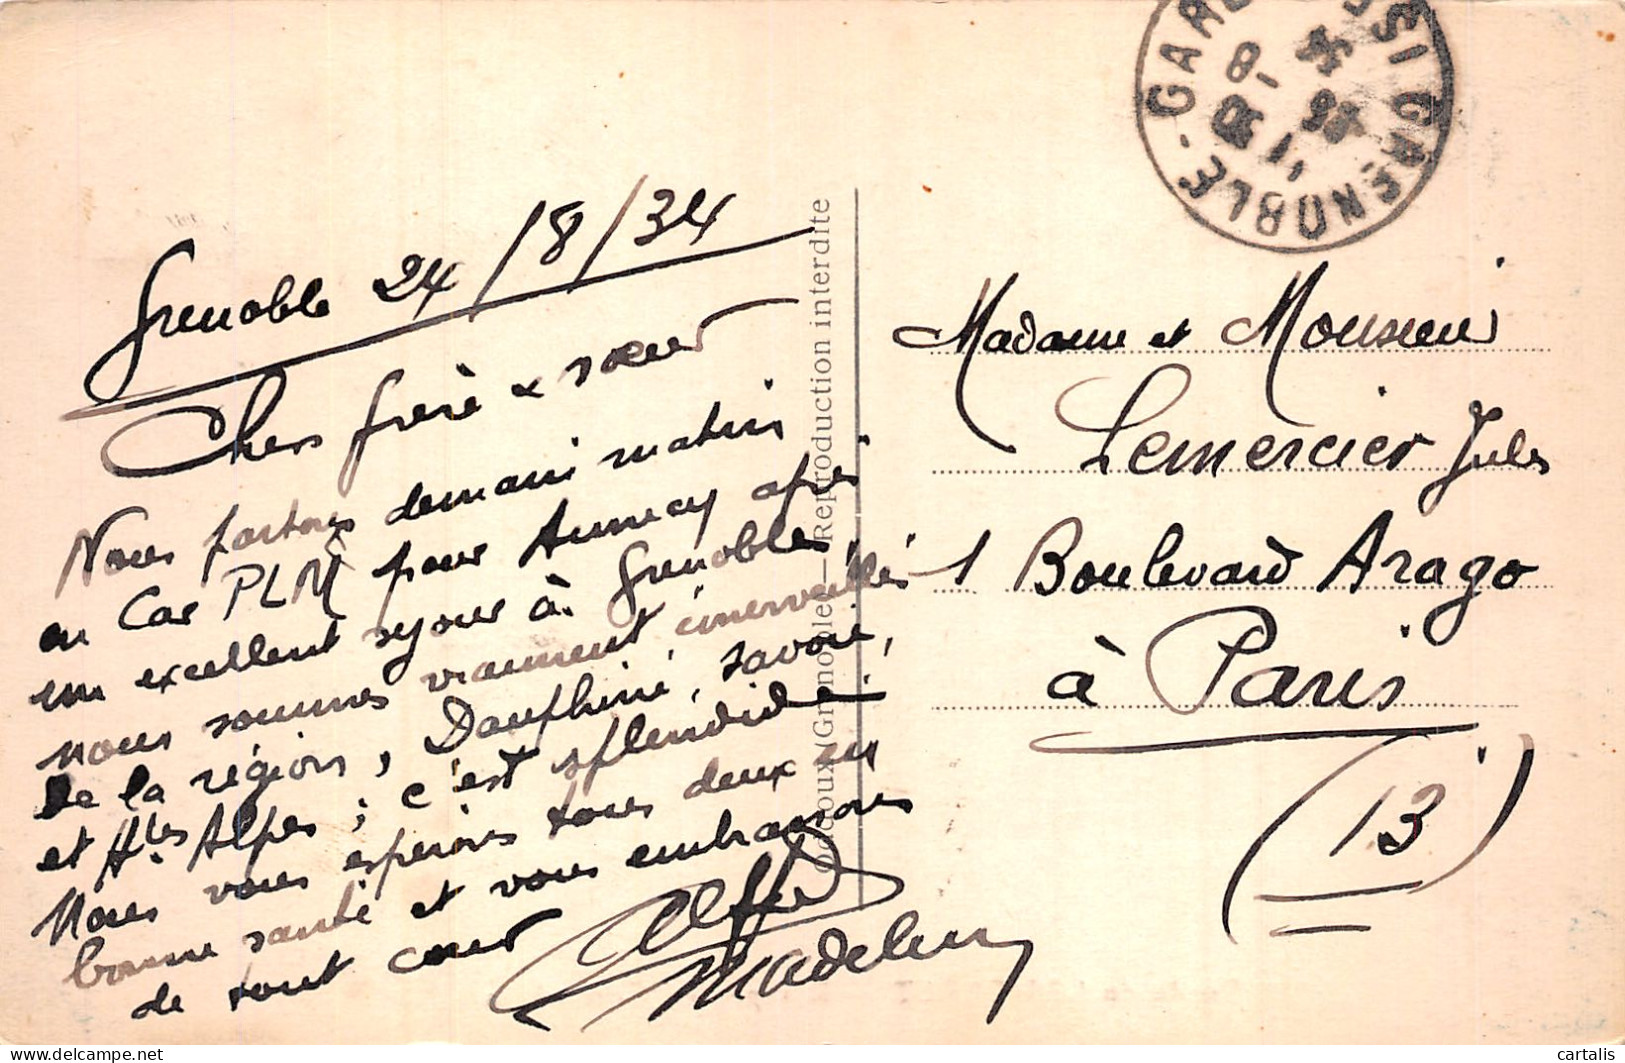 Grenoble 24/8/34
Chers frère & sœur
Nous partons demain matin
en Car PLM pour Annecy après
un excellent séjour à Grenoble,
nous sommes vraiment émerveillés
de la région, Dauphiné, Savoie,
et Htes Alpes ; c'est splendide.
Nous vous espérons tous deux en
bonne santé et vous embrassons
de tout cœur
Alfred
Madeleine
Reproduction interdite
Madame et Monsieur
Lemercier Jules
1 Boulevard Arago
à Paris
(13)
GRENOBLE - GARE
GRENOBLE
cartalis